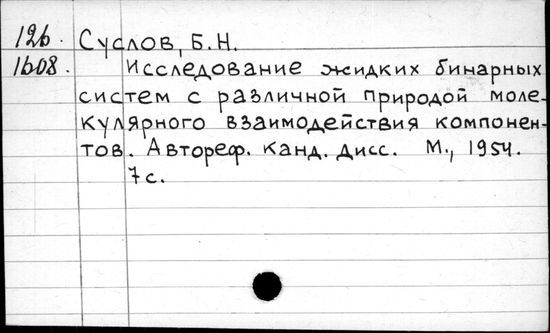 126. Суслов, Б.Н.
1608. Исследование жидких бинарных
систем с различной природой моле-
кулярного взаимодействия компонен-
тов. Автореф. канд. дисс. М., 1954.
7с.